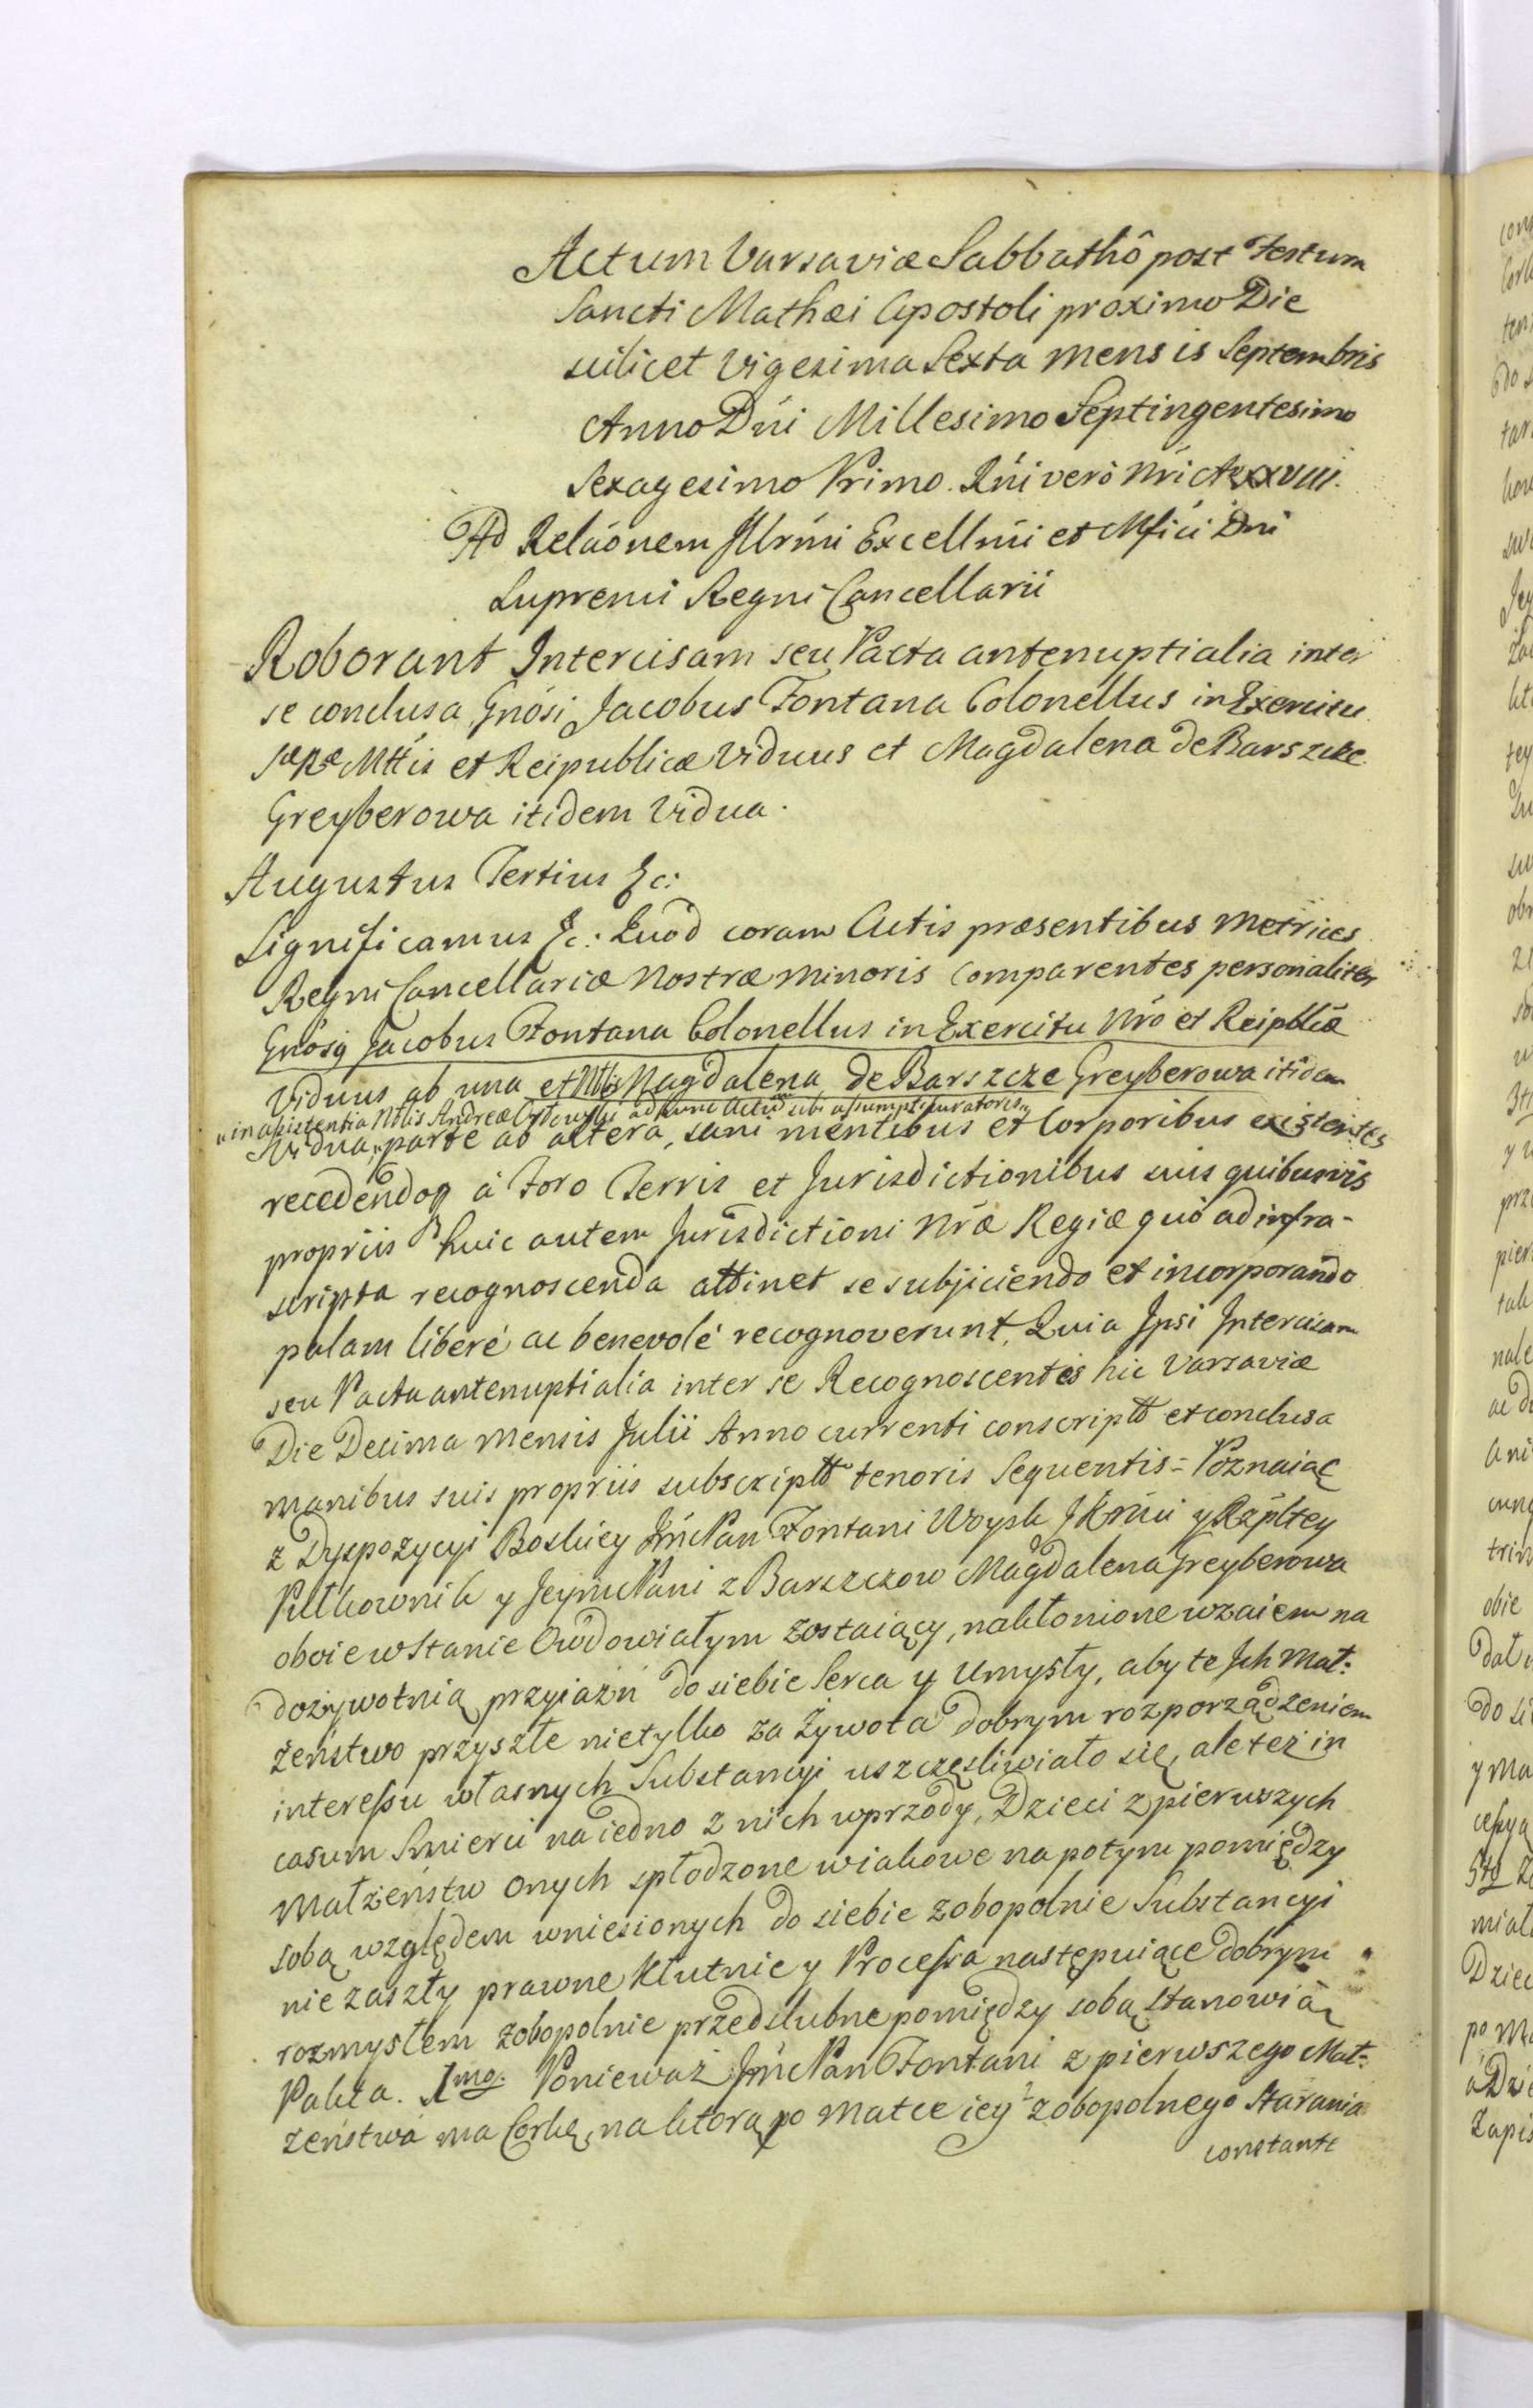 Actum Varsaviæ Sabbathô post Festum
Sancti Mathæi Apostoli proximo Die
scilicet Vigesima Sexta mensis Septembris
Anno Dni Millesimo Septingentesimo
Sexagesimo Primo. Rni verò Nri AXXVIII.
Ad Relãonem Illrmi Excellmi et Mfici Dni
Supremi Regni Cancellarii
Roborant Intercisam seu Pacta antenuptialia inter
se conclusa, Gnosi Jacobus Fontana Colonellus in Exercitu
Mttis et Reipublicæ Viduus et Magdalena de Barszcze
Greyberowa itidem Vidua.
Augustus Tertius &c:
Significamus &c: Quod coram Actis præsentibus Metrices
Regni Cancellariæ Nostræ Minoris Comparentes personaliter
Gnosq Jacobus Fontana Colonellus in Exercitu Nro et Reipblicæ
Viduus ab una et Nblis Magdalena de Barszcze Greyberowa itidem
"in assistentia Nblis Andreæ ad hunc Actum sibi assumpti Curatoris"
Vidua, parte ab altera, sani mentibus et Corporibus existentes
recedendoq à Foro Terris et Jurisdictionibus suis quibusvis
propriis huic autem Jurisdictioni Nræ Regiæ quò ad infra-
scripta recognoscenda attinet se subjiciendo et incorporando
palam liberè ac benevolè recognoverunt, Quia Ipsi Intercisam
seu Pacta antenuptialia inter se Recognoscentes hic Varsaviæ
Die Decima Mensis Julii Anno currenti conscriptt et conclusa
manibus suis propriis subscriptt tenoris Sequentis = Poznaiąc
z Dyspozycyi Boskiey Jmć Pan Fontani Woysk JKrmci y Rzpltey
Pułkownik y Jeymć Pani z Barszczow Magdalena Greyberowa
oboie w Stanie Owdowiałym zostaiący, nakłonione wzaiem na
dożywotnią przyiaźń do siebie Serca y Umysły, aby te Ich Mał:
żeństwo przyszłe nietylko za Żywota dobrym rozporządzeniem
interessu własnych Substancyi uszczęśliwiało się, ale też in
casum Smierci na iedno z nich wprzody, Dzieci z pierwszych
Małżeństw onych spłodzone wiakowe na potym pomiędzy
sobą względem wniesionych do siebie zobopolnie Substancyi
nie zaszły prawne Kłutnie y Processa następuiące dobrym
rozmysłem zobopolnie przedslubne pomiędzy sobą stanowią
Pakta. 1mo. Ponieważ Jmć Pan Fontani z pierwszego Mał:
żeństwa ma Corkę, na ktorą po Matce iey z zobopolnego Starania
constante